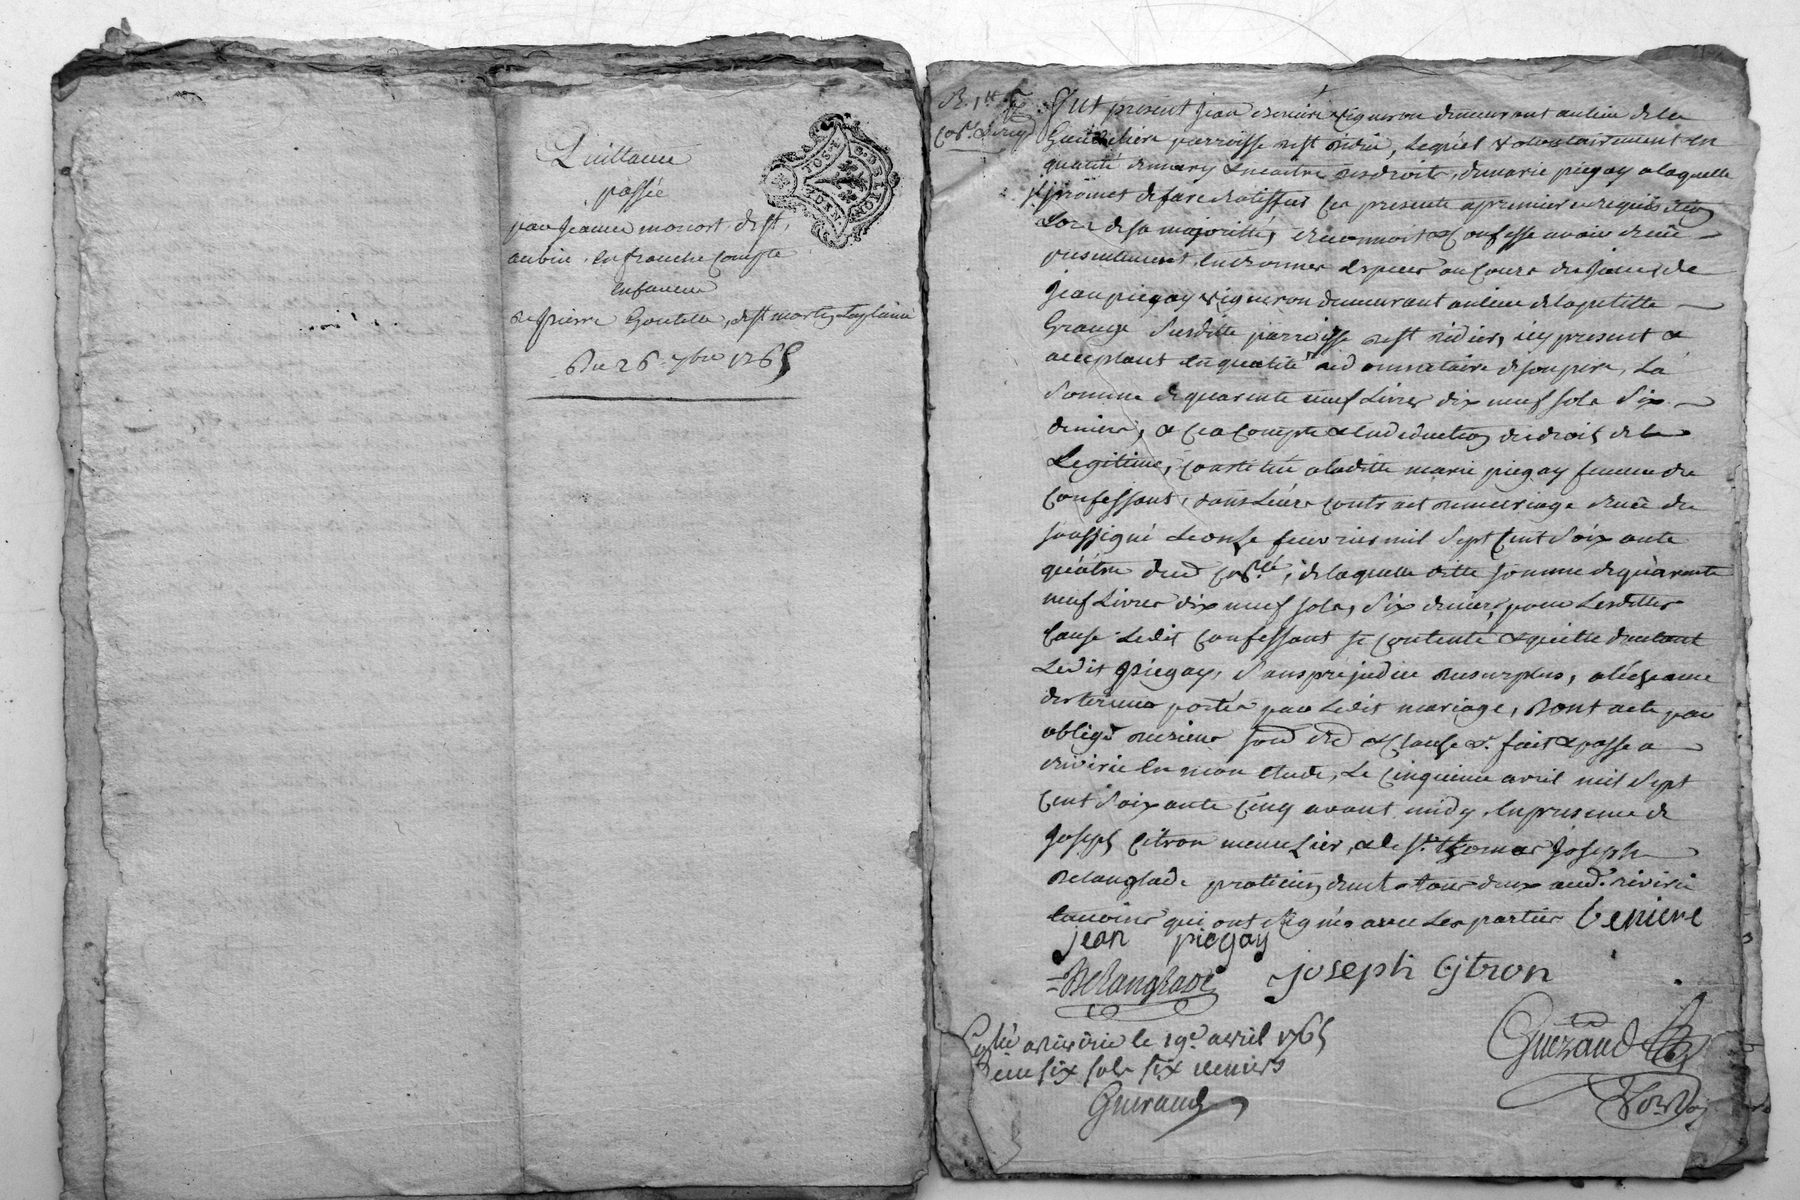 Quittance
passée
par Jeanne monort de st.
aubin en franche Compte
en faveur
de pierre Goutelle, de st martin Laplaine
Du 26 7bre 1765
R. 1tt
Cont.lé
Fut present Jean benière vigneron demeurant au lieu de la
parroisse de st didier, Lequel volontairement en
qualité de mary & maitre des droits, de marie piegay a laquelle
promet de faire Ratiffier Ces presente a premiere requisition
Lors de sa majorité, reconnoit & Confesse avoir receu
presentement, en bonnes Especes au Cours de
Jean piegay vigneron demeurant au lieu de la petitte
Grange Susditte parroisse de st didier, icy present &
acceptant en qualité de donnataire de son pere, La
Somme de quarente neuf Livres dix neuf sols Six
deniers, & Ce a Compte & en deduction des droits de
Legitime, Constitué a laditte marie piegay femme du
Confessant, dans Leur Contract de mariage receu du
soussigné Le onze fevrier mil Sept Cent Soixante
quatre duement Con.lé, de laquelle ditte somme de quarente
neuf Livres dix neuf sols, Six deniers, pour Lesdittes
Cause Ledit Confessant se Contente & quitte d'autant
Ledit piegay, Sans prejudice du surplus, a l'écheance
des termes portés par Ledit mariage, Dont acte par
obligé & Clause &. fait & passé a
rivirie en mon etude, Le Cinquieme avril mil Sept
Cent Soixante Cinq avant midy, en presence de
Joseph Citron menusier, & de sr. thomas Joseph
Delanglade praticien demt. tous deux aud. rivirie
temoins qui ont Signés avec Les parties beniere
jean piegay
Delanglade joseph Citron
Con.lé a rivirie le 19e avril 1765
Reçu six sols six deniers
Gueraud
Gueraud